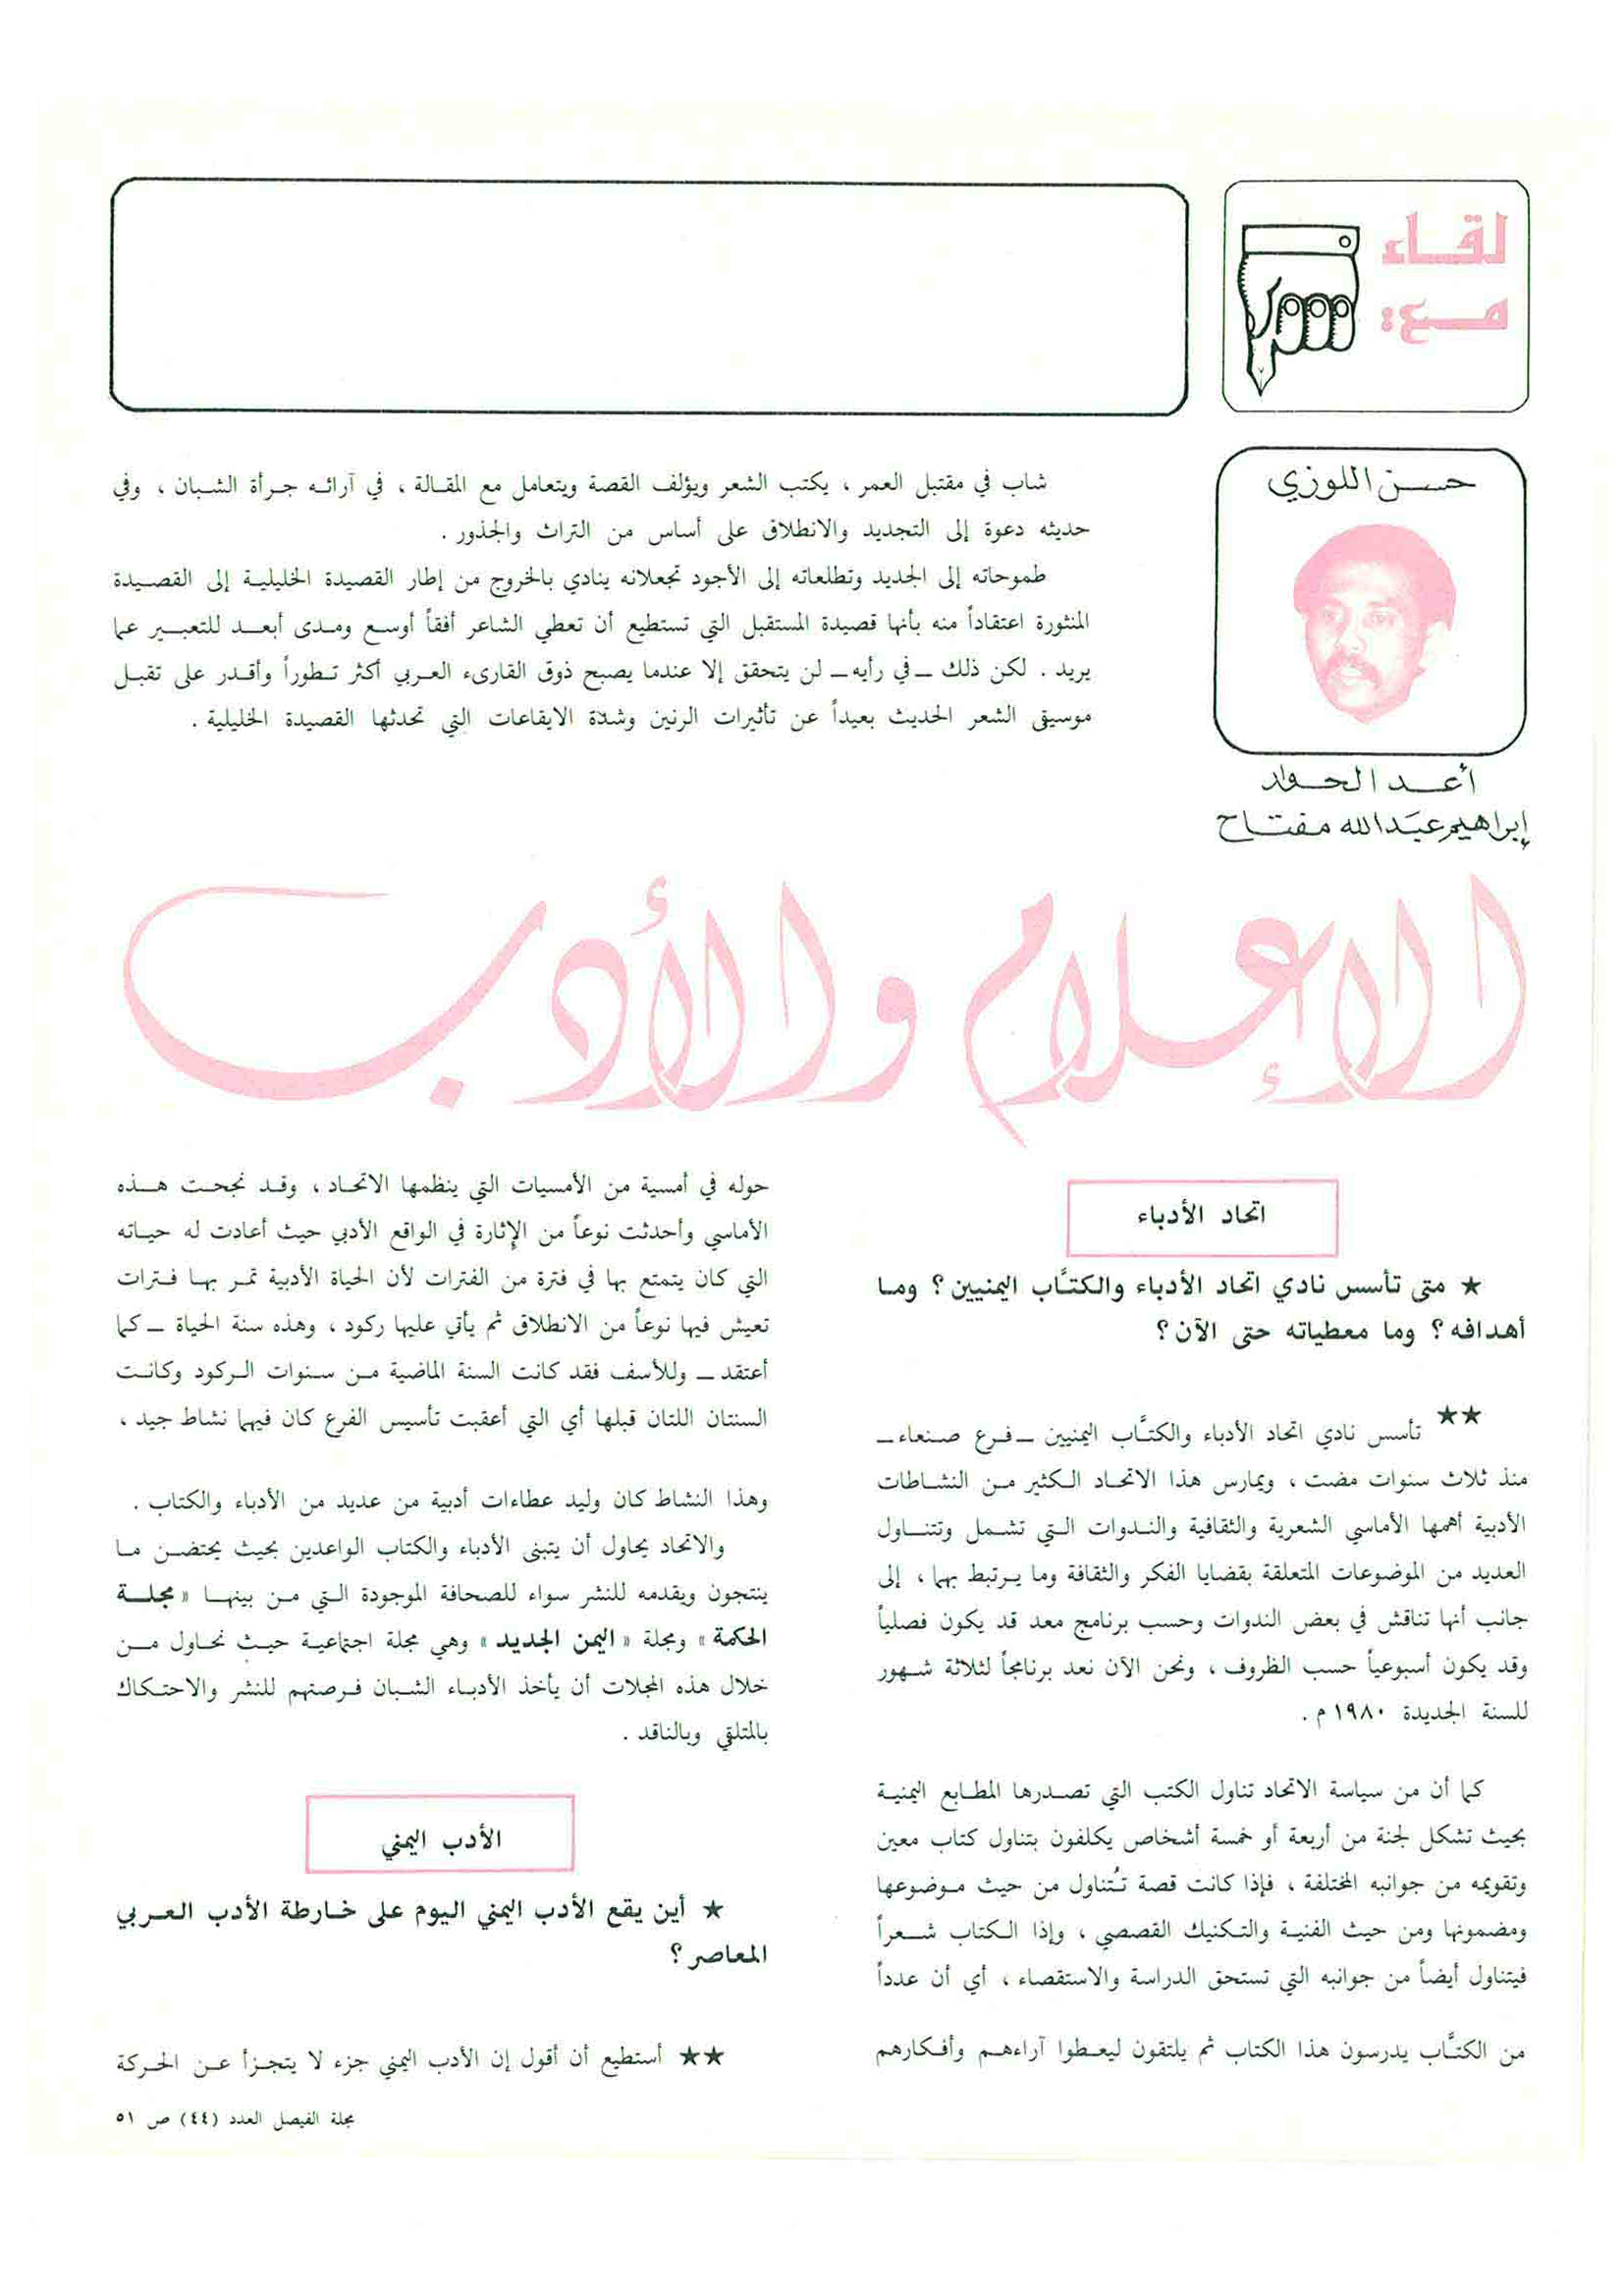 لقاء
مع:
حسن اللوزي
أعد الحوار
إبراهيم عبدالله مفتاح
شاب في مقتبل العمر ، يكتب الشعر ويؤلف القصة ويتعامل مع المقالة ، في آرائه جرأة الشبان ، وفي
حديثه دعوة إلى التجديد والانطلاق على أساس من التراث والجذور .
طموحاته إلى الجديد وتطلعاته إلى الأجود تجعلانه ينادي بالخروج من إطار القصيدة الخليلية إلى القصيدة
المنثورة اعتقاداً منه بأنها قصيدة المستقبل التي تستطيع أن تعطي الشاعر أفقاً أوسع ومدى أبعد للتعبير عما
يريد . لكن ذلك ــ في رأيه ــ لن يتحقق إلا عندما يصبح ذوق القارىء العربي أكثر تطوراً وأقدر على تقبل
موسيقى الشعر الحديث بعيداً عن تأثيرات الرنين وشدة الايقاعات التي تحدثها القصيدة الخليلية .
الإعلام والأدب
اتحاد الأدباء
★ متى تأسس نادي اتحاد الأدباء والكتَّاب اليمنيين ؟ وما
أهدافه ؟ وما معطياته حتى الآن ؟
★★ تأسس نادي اتحاد الأدباء والكتَّاب اليمنيين ــ فرع صنعاء ــ
منذ ثلاث سنوات مضت ، ويمارس هذا الاتحاد الكثير من النشاطات
الأدبية أهمها الأماسي الشعرية والثقافية والندوات التي تشمل وتتناول
العديد من الموضوعات المتعلقة بقضايا الفكر والثقافة وما يرتبط بهما ، إلى
جانب أنها تناقش في بعض الندوات وحسب برنامج معد قد يكون فصلياً
وقد يكون أسبوعياً حسب الظروف ، ونحن الآن نعد برنامجاً لثلاثة شهور
للسنة الجديدة ١٩٨٠ م .
كما أن من سياسة الاتحاد تناول الكتب التي تصدرها المطابع اليمنية
بحيث تشكل لجنة من أربعة أو خمسة أشخاص يكلفون بتناول كتاب معين
وتقويمه من جوانبه المختلفة ، فإذا كانت قصة تُتناول من حيث موضوعها
ومضمونها ومن حيث الفنية والتكنيك القصصي ، وإذا الكتاب شعراً
فيتناول أيضاً من جوانبه التي تستحق الدراسة والاستقصاء ، أي أن عدداً
من الكتَّاب يدرسون هذا الكتاب ثم يلتقون ليعطوا آراءهم وأفكارهم
حوله في أمسية من الأمسيات التي ينظمها الاتحاد ، وقد نجحت هذه
الأماسي وأحدثت نوعاً من الإثارة في الواقع الأدبي حيث أعادت له حياته
التي كان يتمتع بها في فترة من الفترات لأن الحياة الأدبية تمر بها فترات
تعيش فيها نوعاً من الانطلاق ثم يأتي عليها ركود ، وهذه سنة الحياة ــ كما
أعتقد ــ وللأسف فقد كانت السنة الماضية من سنوات الركود وكانت
السنتان اللتان قبلها أي التي أعقبت تأسيس الفرع كان فيهما نشاط جيد ،
وهذا النشاط كان وليد عطاءات أدبية من عديد من الأدباء والكتاب .
والاتحاد يحاول أن يتبنى الأدباء والكتاب الواعدين بحيث يحتضن ما
ينتجون ويقدمه للنشر سواء للصحافة الموجودة التي من بينها « مجلة
الحكمة » ومجلة « اليمن الجديد » وهي مجلة اجتماعية حيث نحاول من
خلال هذه المجلات أن يأخذ الأدباء الشبان فرصتهم للنشر والاحتكاك
بالمتلقي وبالناقد .
الأدب اليمني
★ أين يقع الأدب اليمني اليوم على خارطة الأدب العربي
المعاصر ؟
★★ أستطيع أن أقول إن الأدب اليمني جزء لا يتجزأ عن الحركة
مجلة الفيصل العدد (٤٤) ص ٥١